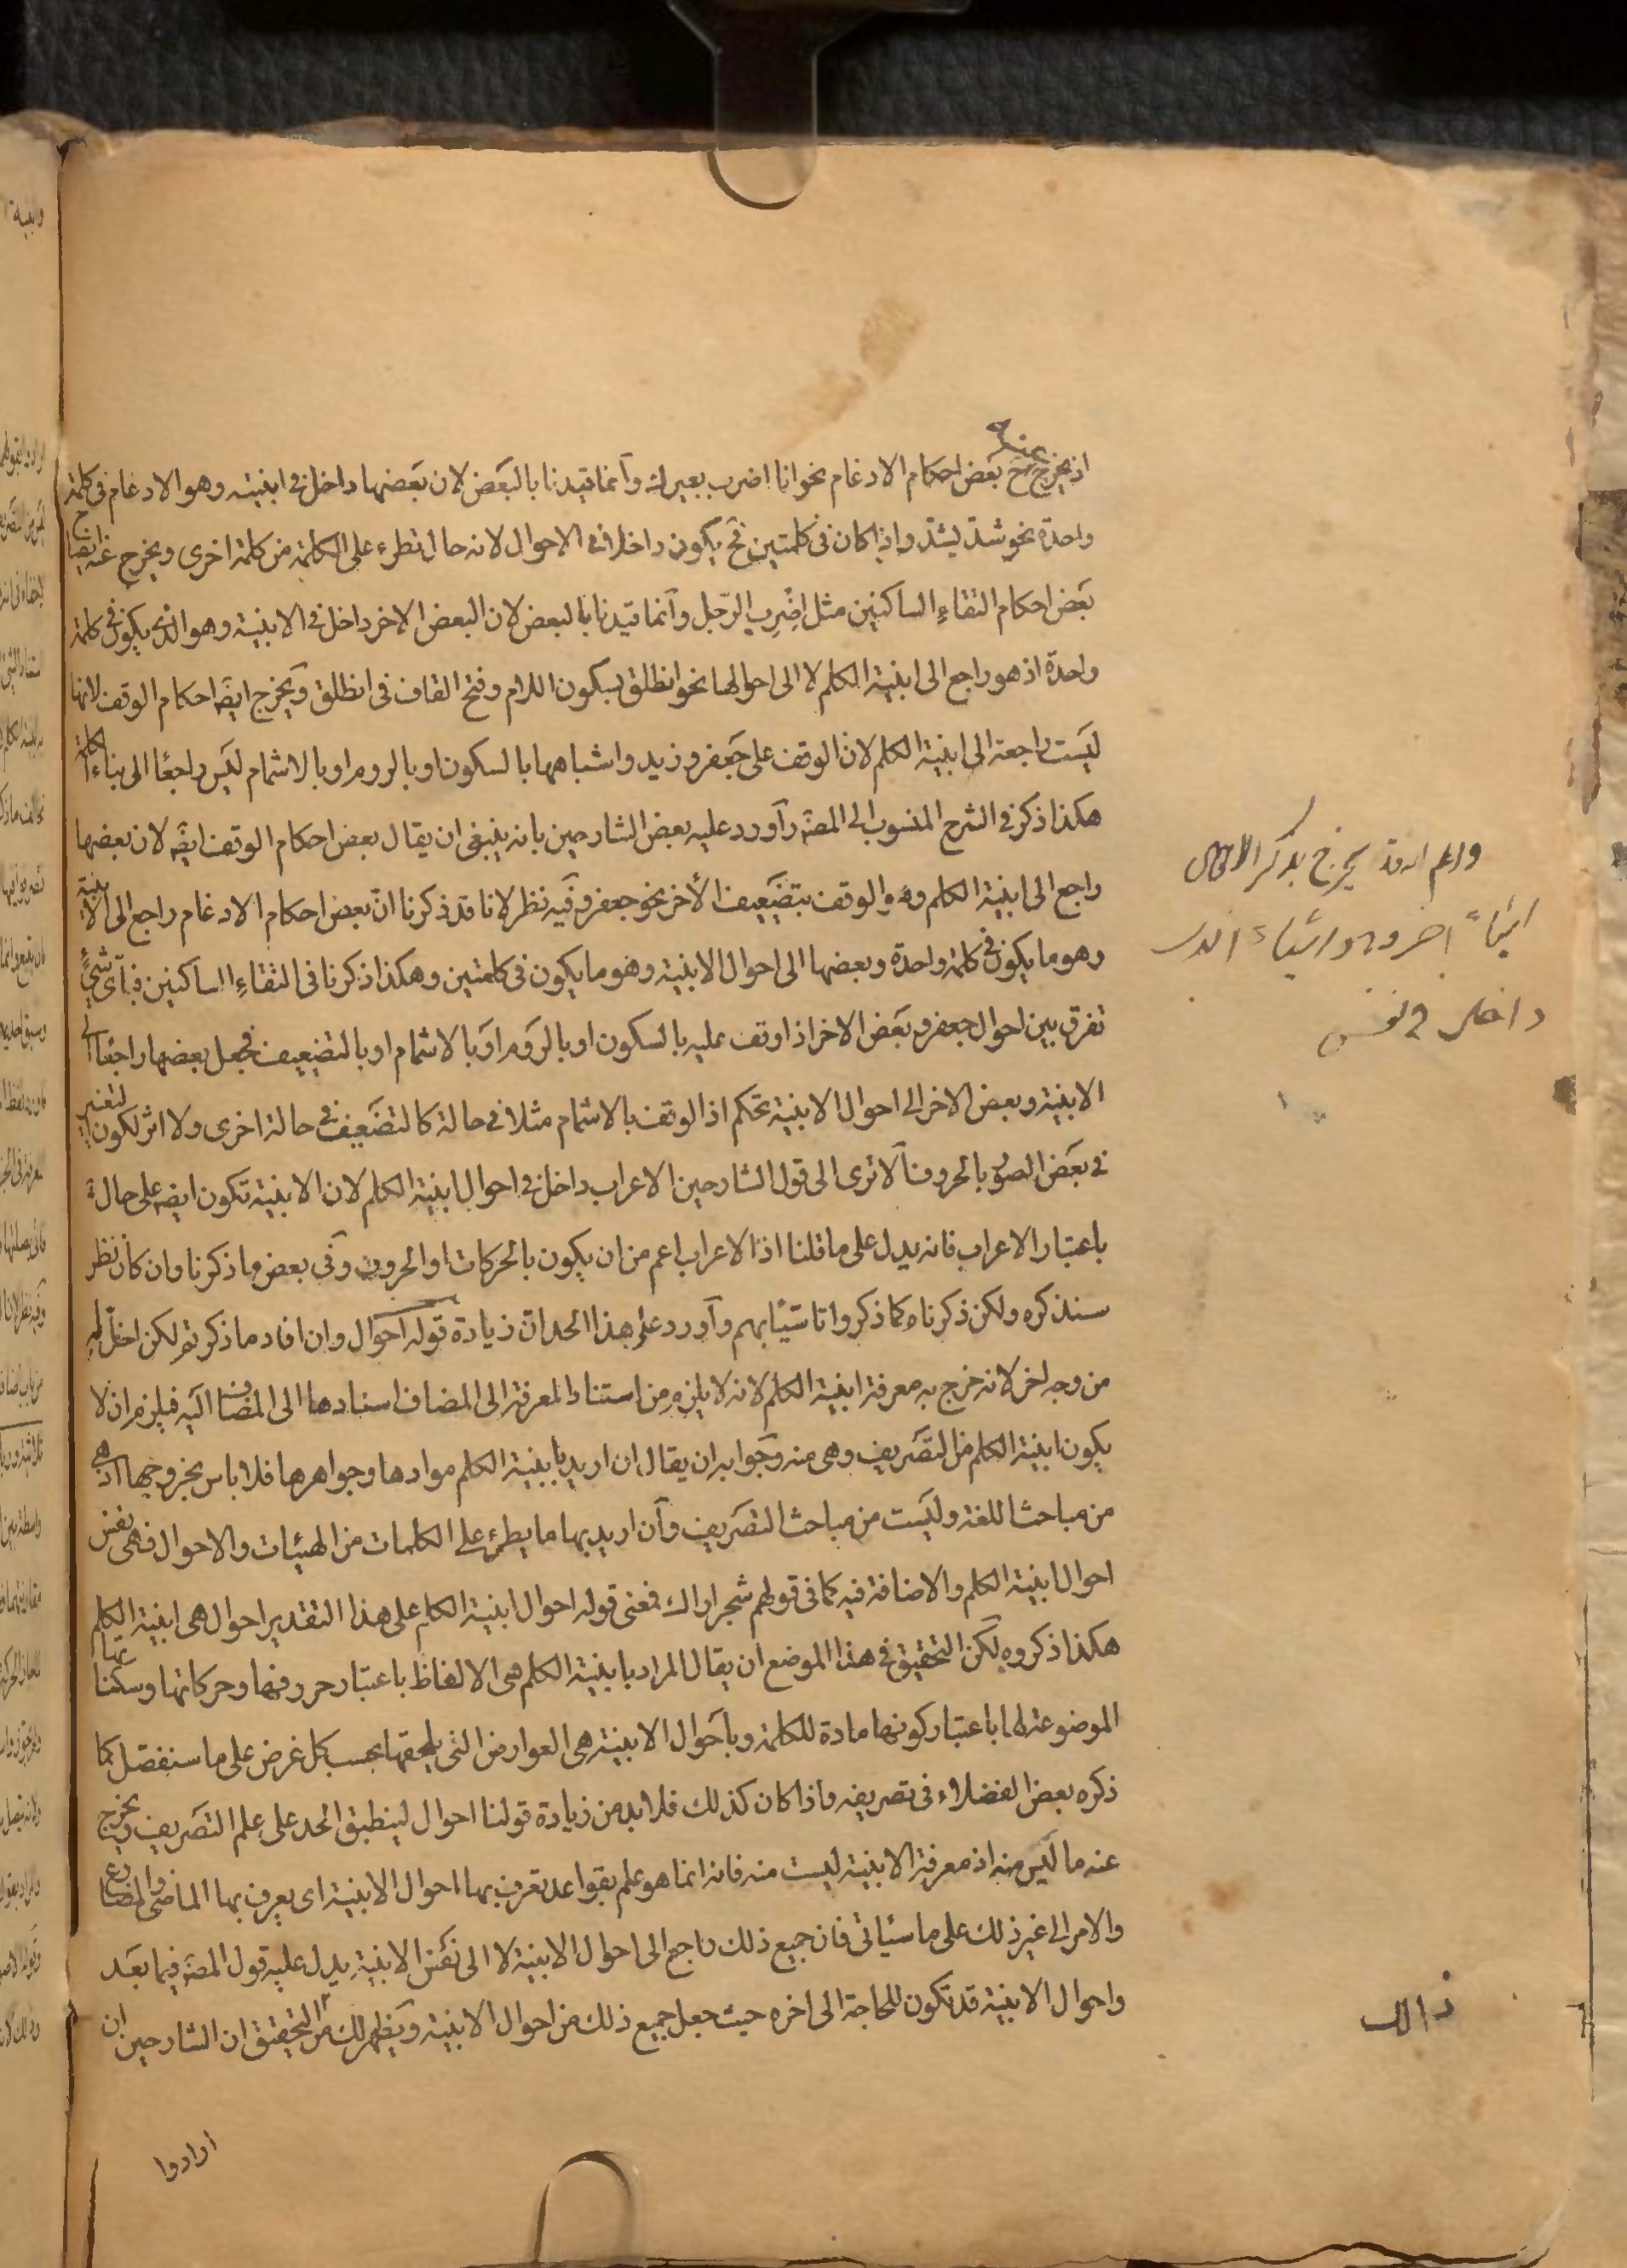 اذ يخرج ح بعض احكام الادغام نحو انا اضرب بعيرك وانما قيدنا بالبعض لان بعضها داخل في ابنيته وهو الادغام في كلمة
واحدة نحو شد يشد واذا كان في كلمتين فح يكون داخلا في الاحوال لانه حال تطرء على الكلمة من كلمة اخرى ويخرج عنه ايضا
بعض احكام التقاء الساكنين مثل اضرب الرجل وانما قيدنا بالبعض لان البعض الاخر داخل في الابنية وهو الذي يكون في كلمة
واحدة اذ هو راجع الى ابنية الكلم لا الى احوالها نحو انطلق بسكون اللام وفتح القاف في انطلق ويخرج ايضه احكام الوقف لانها
ليست راجعة الى ابنية الكلم لان الوقف على جعفر وزيد واشباههما بالسكون او بالروم او بالاشمام ليس راجعا الى بناء الكلمة
هكذا ذكر في الشرح المنسوب الى المصه واورد عليه بعض الشارحين بانه ينبغي ان يقال بعض احكام الوقف ايضه لان بعضها
راجع الى ابنية الكلم وهو الوقف بتضعيف الاخر نحو جعفر وفيه نظر لانا قد ذكرنا ان بعض احكام الادغام راجع الى الابنية
وهو ما يكون في كلمة واحدة وبعضها الى احوال الابنية وهو ما يكون في كلمتين وهكذا ذكرنا في التقاء الساكنين فباى شيء
تفرق بين احوال جعفر وبعض الاخر اذا وقف عليه بالسكون او بالروم او بالاشمام او بالتضعيف فجعل بعضها راجعا الى
الابنية وبعض الاخر الى احوال الابنية تحكم اذ الوقف بالاشمام مثلا في حالة كالتضعيف في حالة اخرى ولا اثر لكون التغيير
في بعض الصور بالحروف الا ترى الى قول الشارحين الاعراب داخل في احوال ابنية الكلم لان الابنية تكون ايضه على حالة
باعتبار الاعراب فانه يدل على ما قلنا اذ الاعراب اعم من ان يكون بالحركات او الحروف وفي بعض ما ذكرنا وان كان نظر
سنذكره ولكن ذكرناه كما ذكروا تاسيا بهم واورد على هذا الحد ان زيادة قوله احوال وان افاد ما ذكرتم لكن اخل به
من وجه اخر لانه خرج به معرفة ابنية الكلم لانه لا يلزم من استناد المعرفة الى المضاف اسنادها الى المضاف اليه فيلزم ان لا
يكون ابنية الكلم من التصريف وهى منه وجوابه ان يقال ان اريد بابنية الكلم موادها وجواهرها فلا باس بخروجها اذ هى
من مباحث اللغة وليست من مباحث التصريف وان اريد بها ما يطرء على الكلمات من الهيئات والاحوال فهى نفس
احوال ابنية الكلم والاضافة فيه كما في قولهم شجر اراك فمعنى قوله احوال ابنية الكلم على هذا التقدير احوال هى ابنية الكلم
هكذا ذكروه لكن التحقيق في هذا الموضع ان يقال المراد بابنية الكلم هى الالفاظ باعتبار حروفها وحركاتها وسكناتها
الموضوعة لها باعتبار كونها مادة للكلمة وباحوال الابنية هى العوارض التى يلحقها بحسب كل غرض على ما سنفصل كما
ذكره بعض الفضلاء في تصريفه واذا كان كذلك فلا بد من زيادة قولنا احوال لينطبق الحد على علم التصريف ويخرج
عنه ما ليس منه اذ معرفة الابنية ليست منه فانه انما هو علم بقواعد تعرف بها احوال الابنية اى يعرف بها الماضى والمضارع
والامر الى غير ذلك على ما سياتى فان جميع ذلك راجع الى احوال الابنية لا الى نفس الابنية يدل عليه قول المصه فيما بعد
واحوال الابنية قد تكون للحاجة الى اخره حيث جعل جميع ذلك من احوال الابنية ويظهر لك من التحقيق ان الشارحين ان
ارادوا
واعلم انه قد يخرج بذكر الاحوال
اشياء اخر وهو اشياء
داخلـ في نفس
ذالك